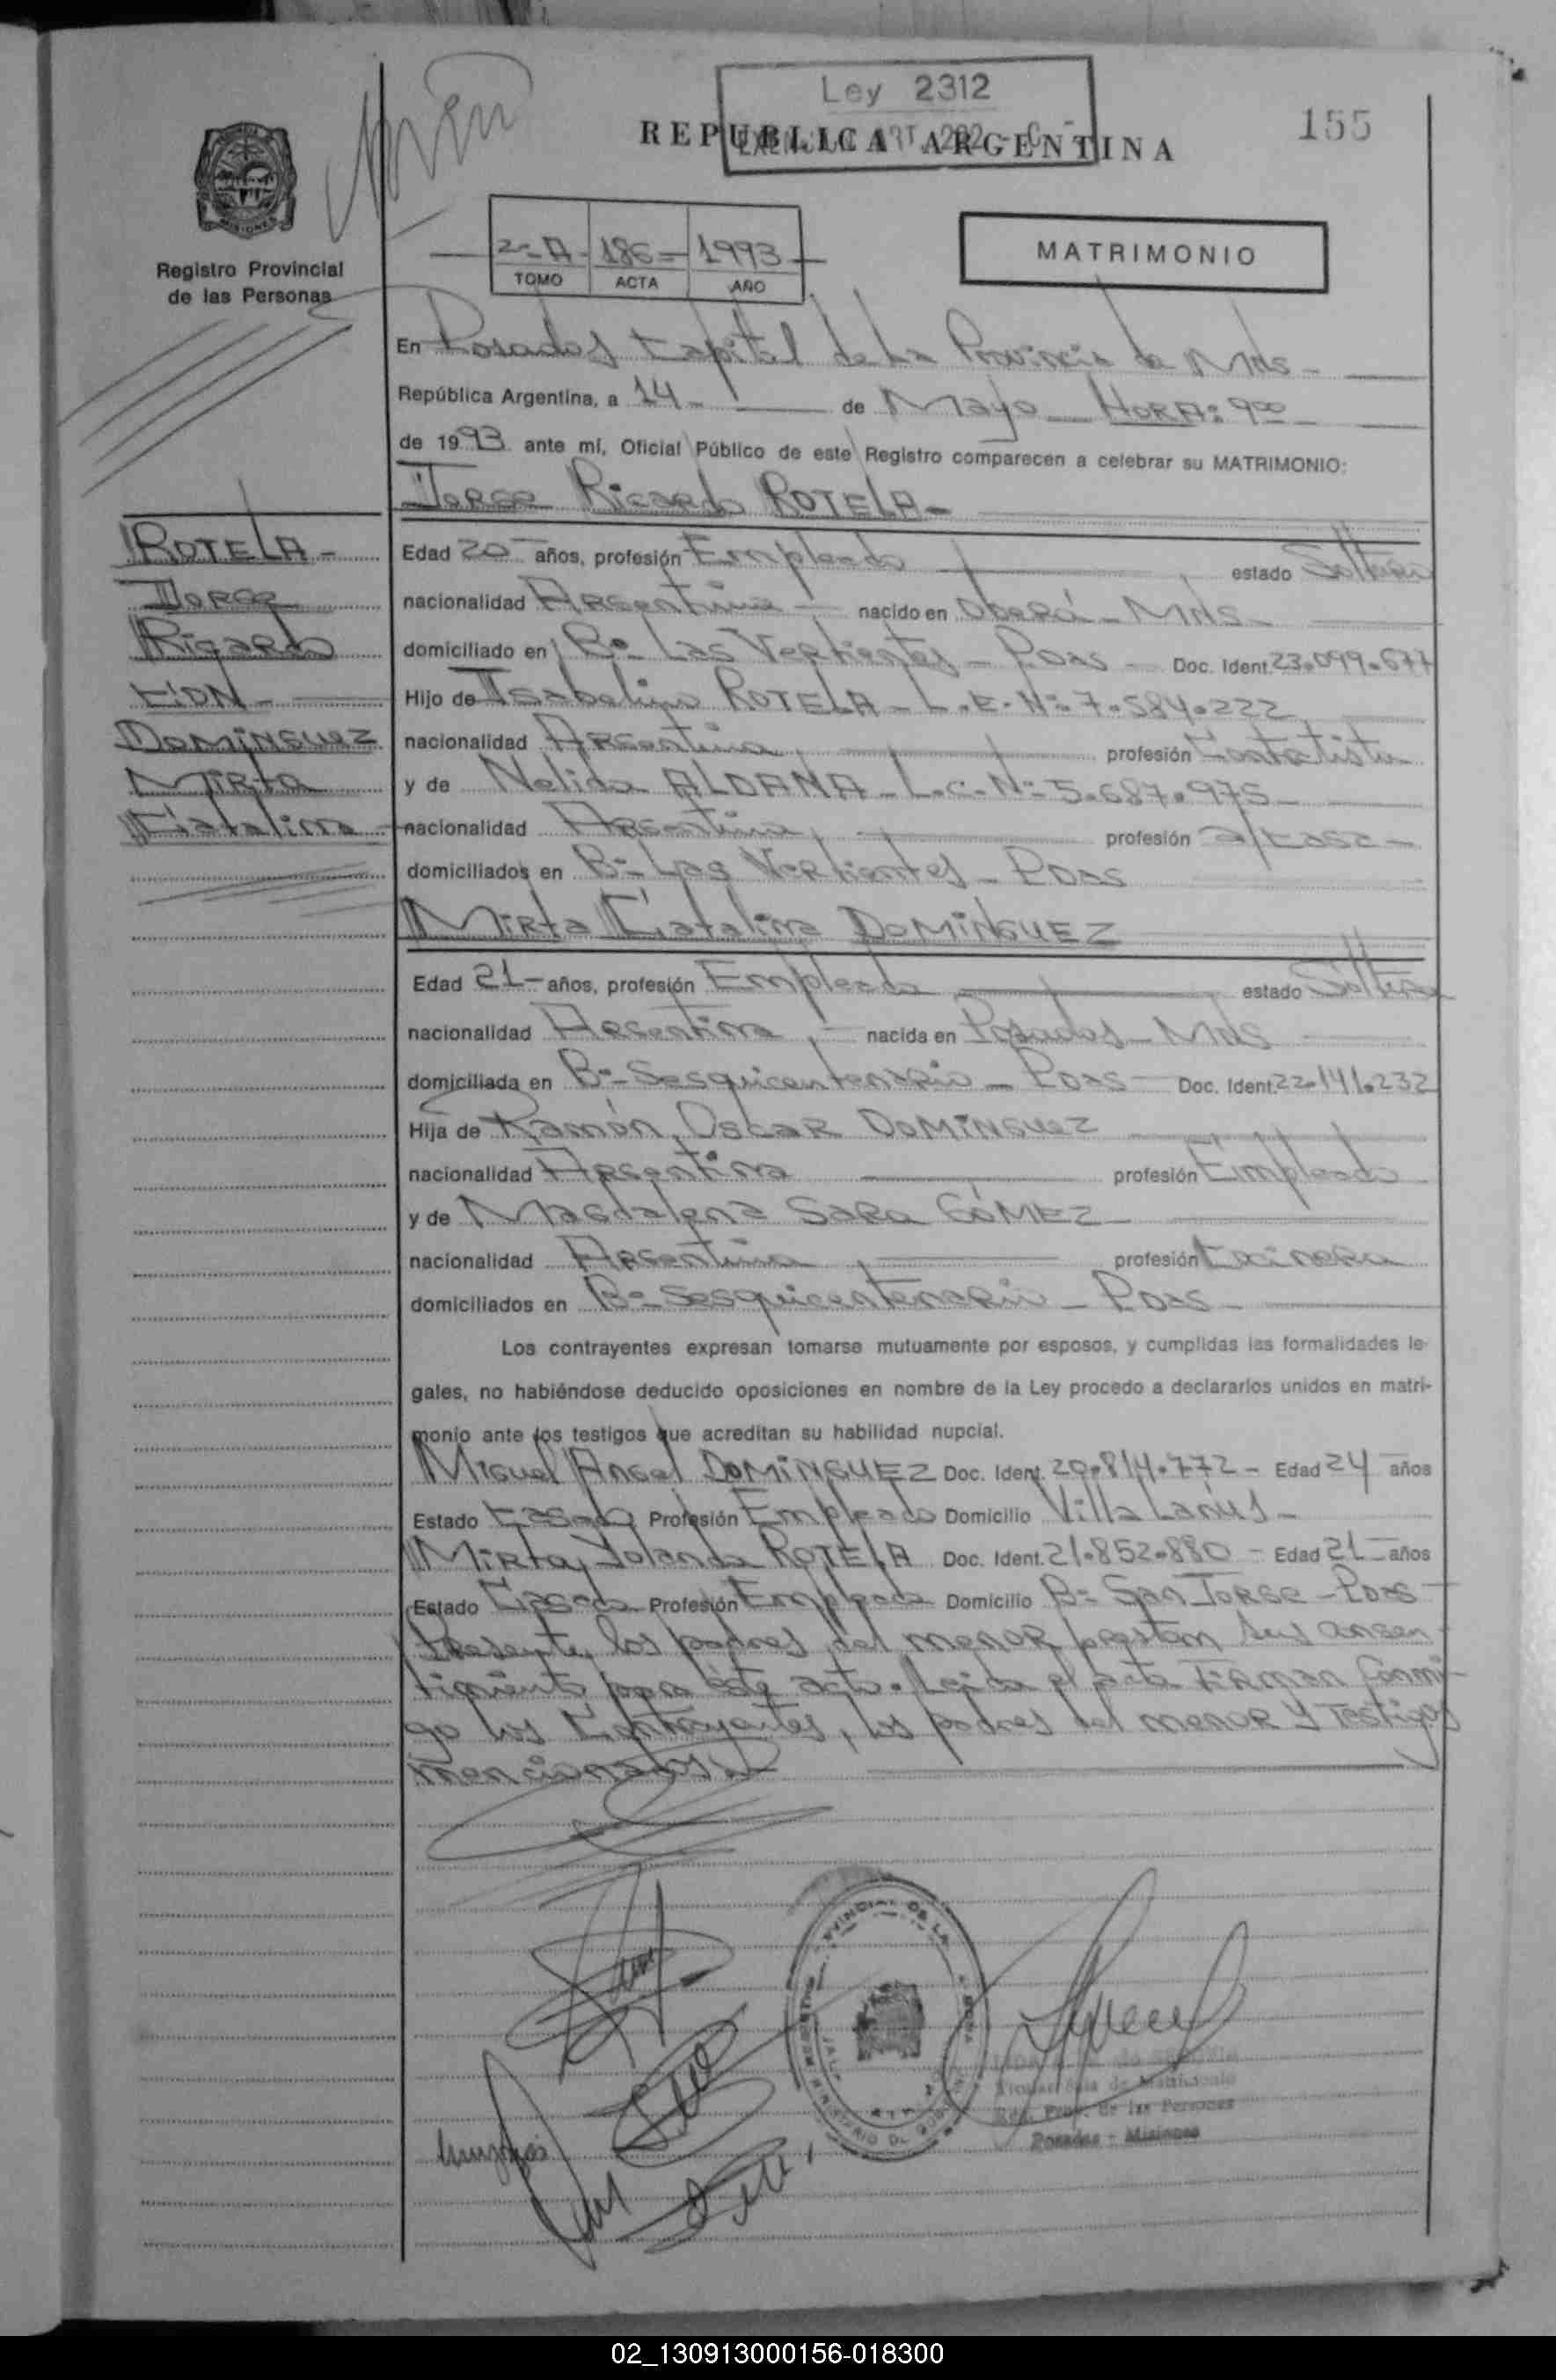 Ley 2312
REPUBLICA ARGENTINA
155
MISIONES
Registro Provincial
de las Personas
2-A- 186- 1993
TOMO ACTA AÑO
MATRIMONIO
En Posadas Capital de La Provincia de Mnes-
República Argentina, a 14- de Mayo HORA: 9 00
de 1993 ante mí, Oficial Público de este Registro comparecen a celebrar su MATRIMONIO:
Jorge Ricardo ROTELA-
ROTELA-
Jorge
Ricardo
CON-
DOMINGUEZ
Mirta
Catalina
Edad 20 años, profesión Empleado estado Soltero
nacionalidad Argentina nacido en Oberá - Mnes-
domiciliado en Bº Las Vertientes - Pdas - Doc. Ident. 23.099.677
Hijo de Isabelino ROTELA - L.E. Nº 7.584.222
nacionalidad Argentina, profesión Contratista
y de Nelida ALDANA - L.C. Nº 5.687.975-
nacionalidad Argentina, profesión a/casa-
domiciliados en Bº Las Vertientes - Pdas
Mirta Catalina DOMINGUEZ
Edad 21- años, profesión Empleada estado Soltera
nacionalidad Argentina, nacida en Posadas - Mnes
domiciliada en Bº Sesquicentenario - Pdas - Doc. Ident. 22.141.232
Hija de Ramón Oscar DOMINGUEZ
nacionalidad Argentina profesión Empleado
y de Magdalena SARA GÓMEZ-
nacionalidad Argentina, profesión Cocinera
domiciliados en Bº Sesquicentenario - Pdas-
Los contrayentes expresan tomarse mutuamente por esposos, y cumplidas las formalidades le-
gales, no habiéndose deducido oposiciones en nombre de la Ley procedo a declararlos unidos en matri-
monio ante los testigos que acreditan su habilidad nupcial.
Miguel Angel DOMINGUEZ Doc. Ident. 20.814.772- Edad 24 años
Estado Casado Profesión Empleado Domicilio Villa Lanús-
Mirta Yolanda ROTELA Doc. Ident. 21.852.880- Edad 21 años
Estado Casada Profesión Empleada Domicilio Bº San Jorge - Pdas
Presente los padres del menor prestan sus consen-
timiento para éste acto. Leida el acta Firman conmi-
go los Contrayentes, los padres del menor y Testigos
mencionados.
de Matrimonio
Reg. Prov. de las Personas
Posadas - Misiones
02_130913000156-018300